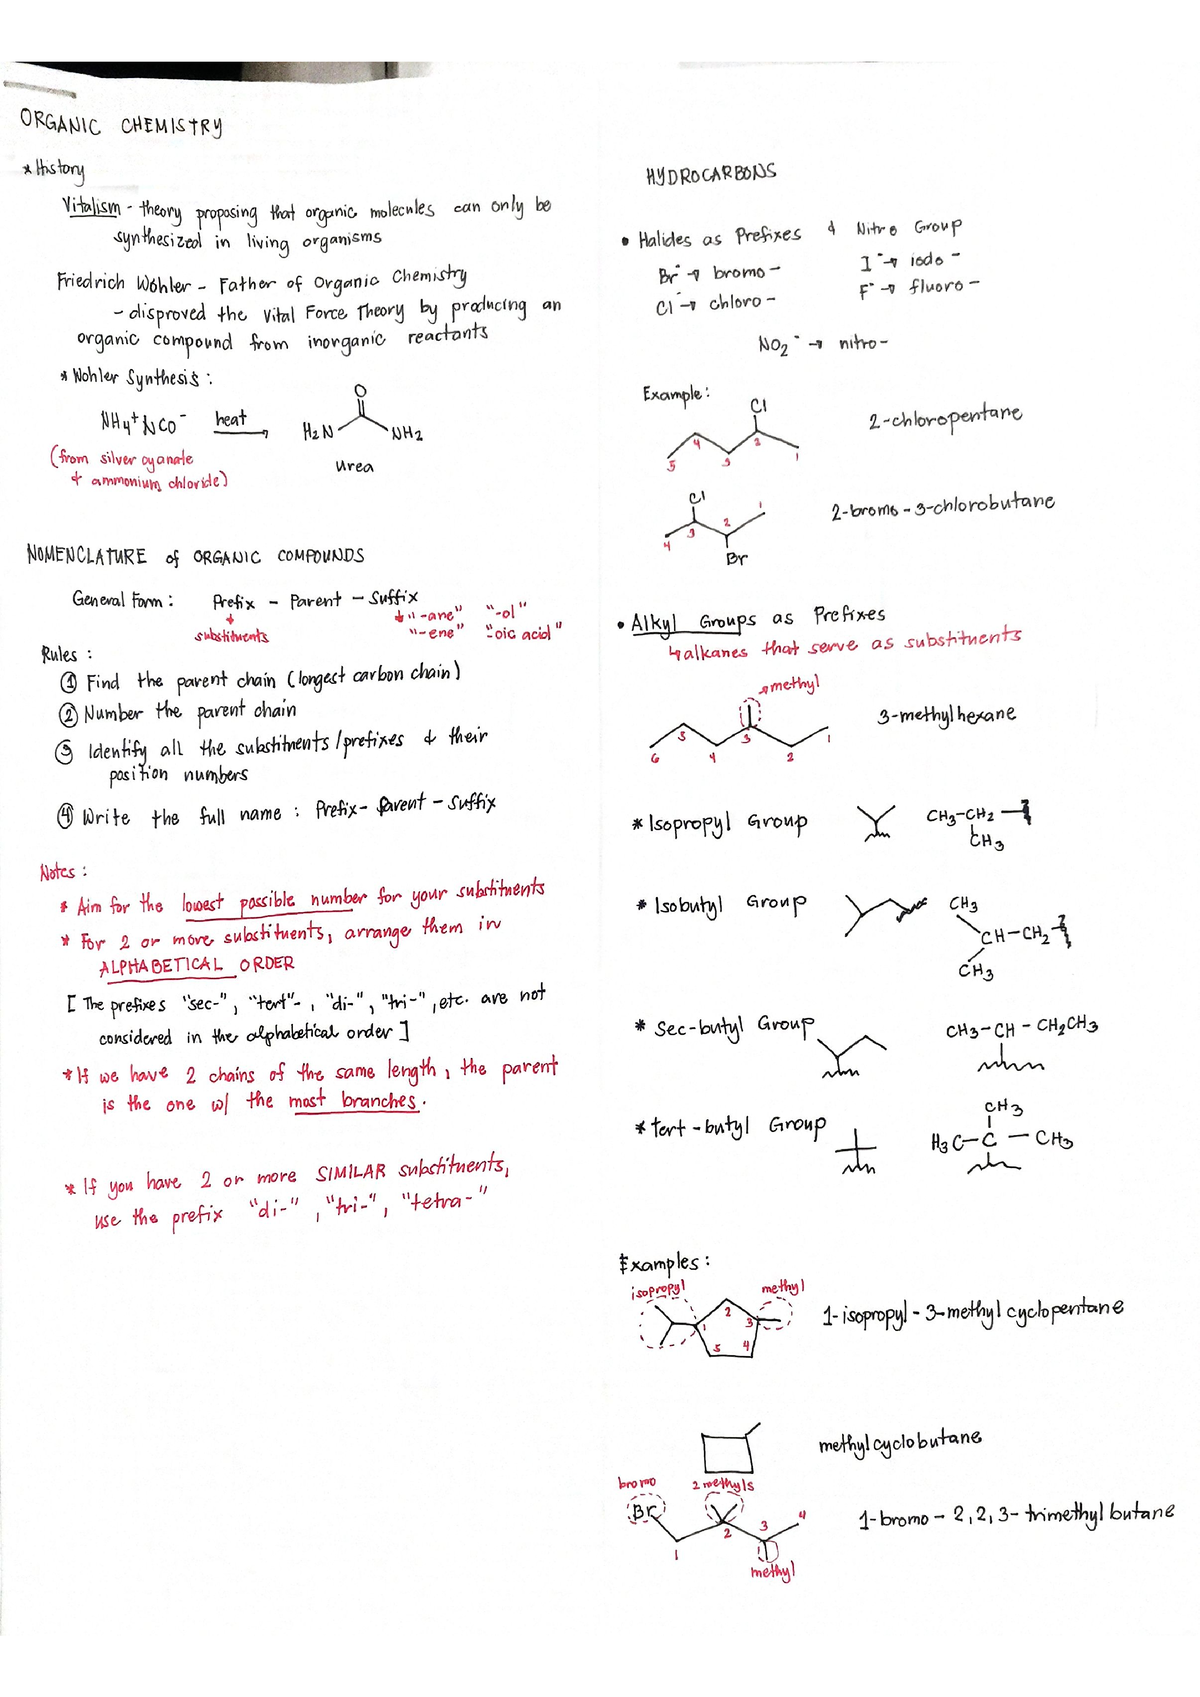 ORGANIC CHEMISTRY
* History
Vitalism - theory proposing that organic molecules can only be
synthesized in living organisms
Friedrich Wöhler - Father of Organic Chemistry
- disproved the Vital Force Theory by producing an
organic compound from inorganic reactants
* Wohler Synthesis :
NH4+ NCO- heat → H2N O NH2
(from silver cyanate
& ammonium chloride)
urea
NOMENCLATURE of ORGANIC COMPOUNDS
General Form : Prefix - Parent - Suffix
substituents
"-ane" "-ol"
"-ene" "-oic acid"
Rules :
① Find the parent chain (longest carbon chain)
② Number the parent chain
③ Identify all the substituents / prefixes & their
position numbers
④ Write the full name : Prefix - Parent - Suffix
Notes :
* Aim for the lowest possible number for your substituents
* For 2 or more substituents, arrange them in
ALPHABETICAL ORDER
[ The prefixes "sec-", "tert"-, "di-", "tri-", etc. are not
considered in the alphabetical order ]
* If we have 2 chains of the same length, the parent
is the one w/ the most branches.
* If you have 2 or more SIMILAR substituents,
use the prefix "di-", "tri-", "tetra-"
HYDROCARBONS
• Halides as Prefixes & Nitro Group
Br- → bromo-
I- → iodo-
Cl- → chloro-
F- → fluoro-
NO2- → nitro-
Example :
Cl
5 4 3 2 1
2-chloropentane
Cl
4 3 2 1
Br
2-bromo-3-chlorobutane
• Alkyl Groups as Prefixes
↳ alkanes that serve as substituents
→ methyl
6 5 4 3 2 1
3-methylhexane
* Isopropyl Group
CH3-CH2
CH3
* Isobutyl Group
CH3
CH-CH2
CH3
* Sec-butyl Group
CH3-CH-CH2CH3
* tert-butyl Group
CH3
H3C-C-CH3
Examples :
isopropyl methyl
1 2 3 4 5
1-isopropyl-3-methylcyclopentane
methylcyclobutane
bromo 2 methyls
Br
1 2 3 4
methyl
1-bromo-2,2,3-trimethylbutane